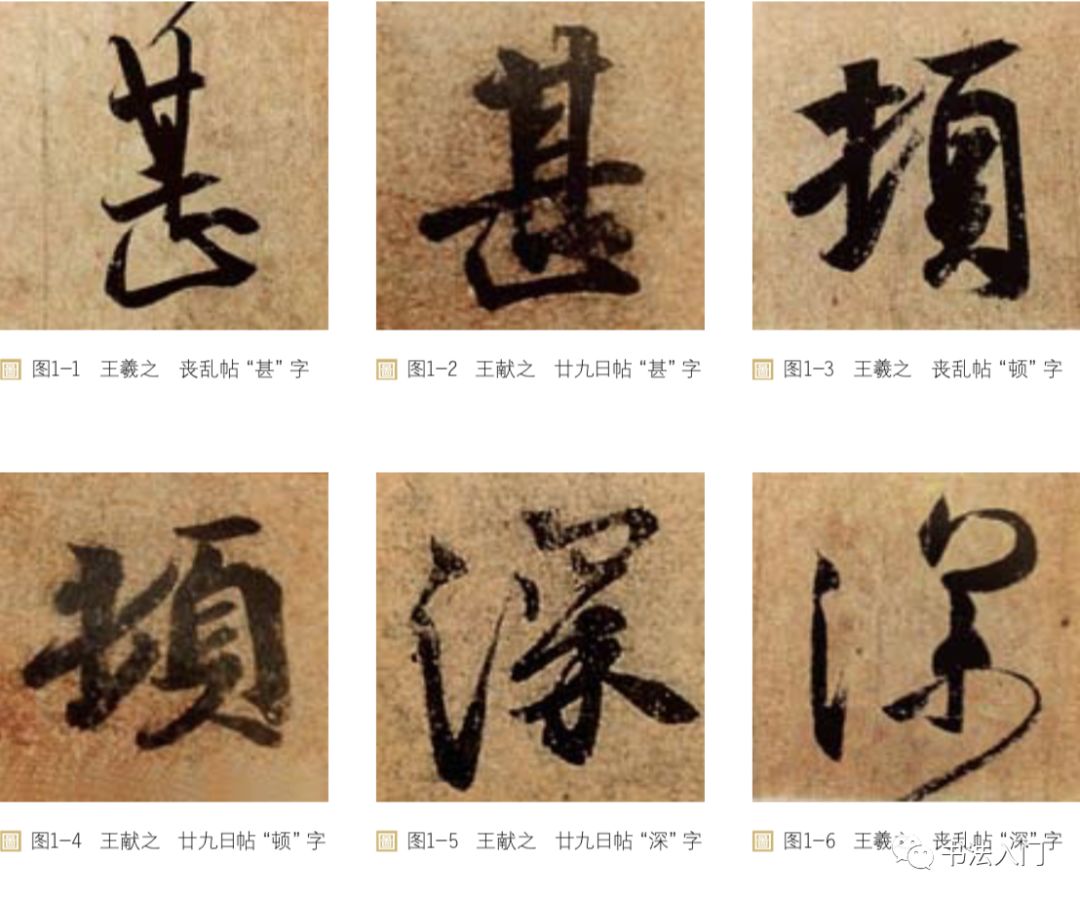 甚
甚
頓
图1-1 王羲之 丧乱帖“甚”字
图1-2 王献之 廿九日帖“甚”字
图1-3 王羲之 丧乱帖“顿”字
頓
深
深
图1-4 王献之 廿九日帖“顿”字
图1-5 王献之 廿九日帖“深”字
图1-6 王羲之 丧乱帖“深”字
书法入门